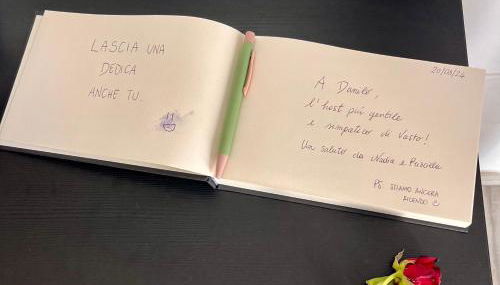 LASCIA UNA
DEDICA
ANCHE TU.
20/08/24
A Danilo,
l'host più gentile
e simpatico di Vasto!
Un saluto da Nadia e
PS. STIAMO ANCORA
RIDENDO